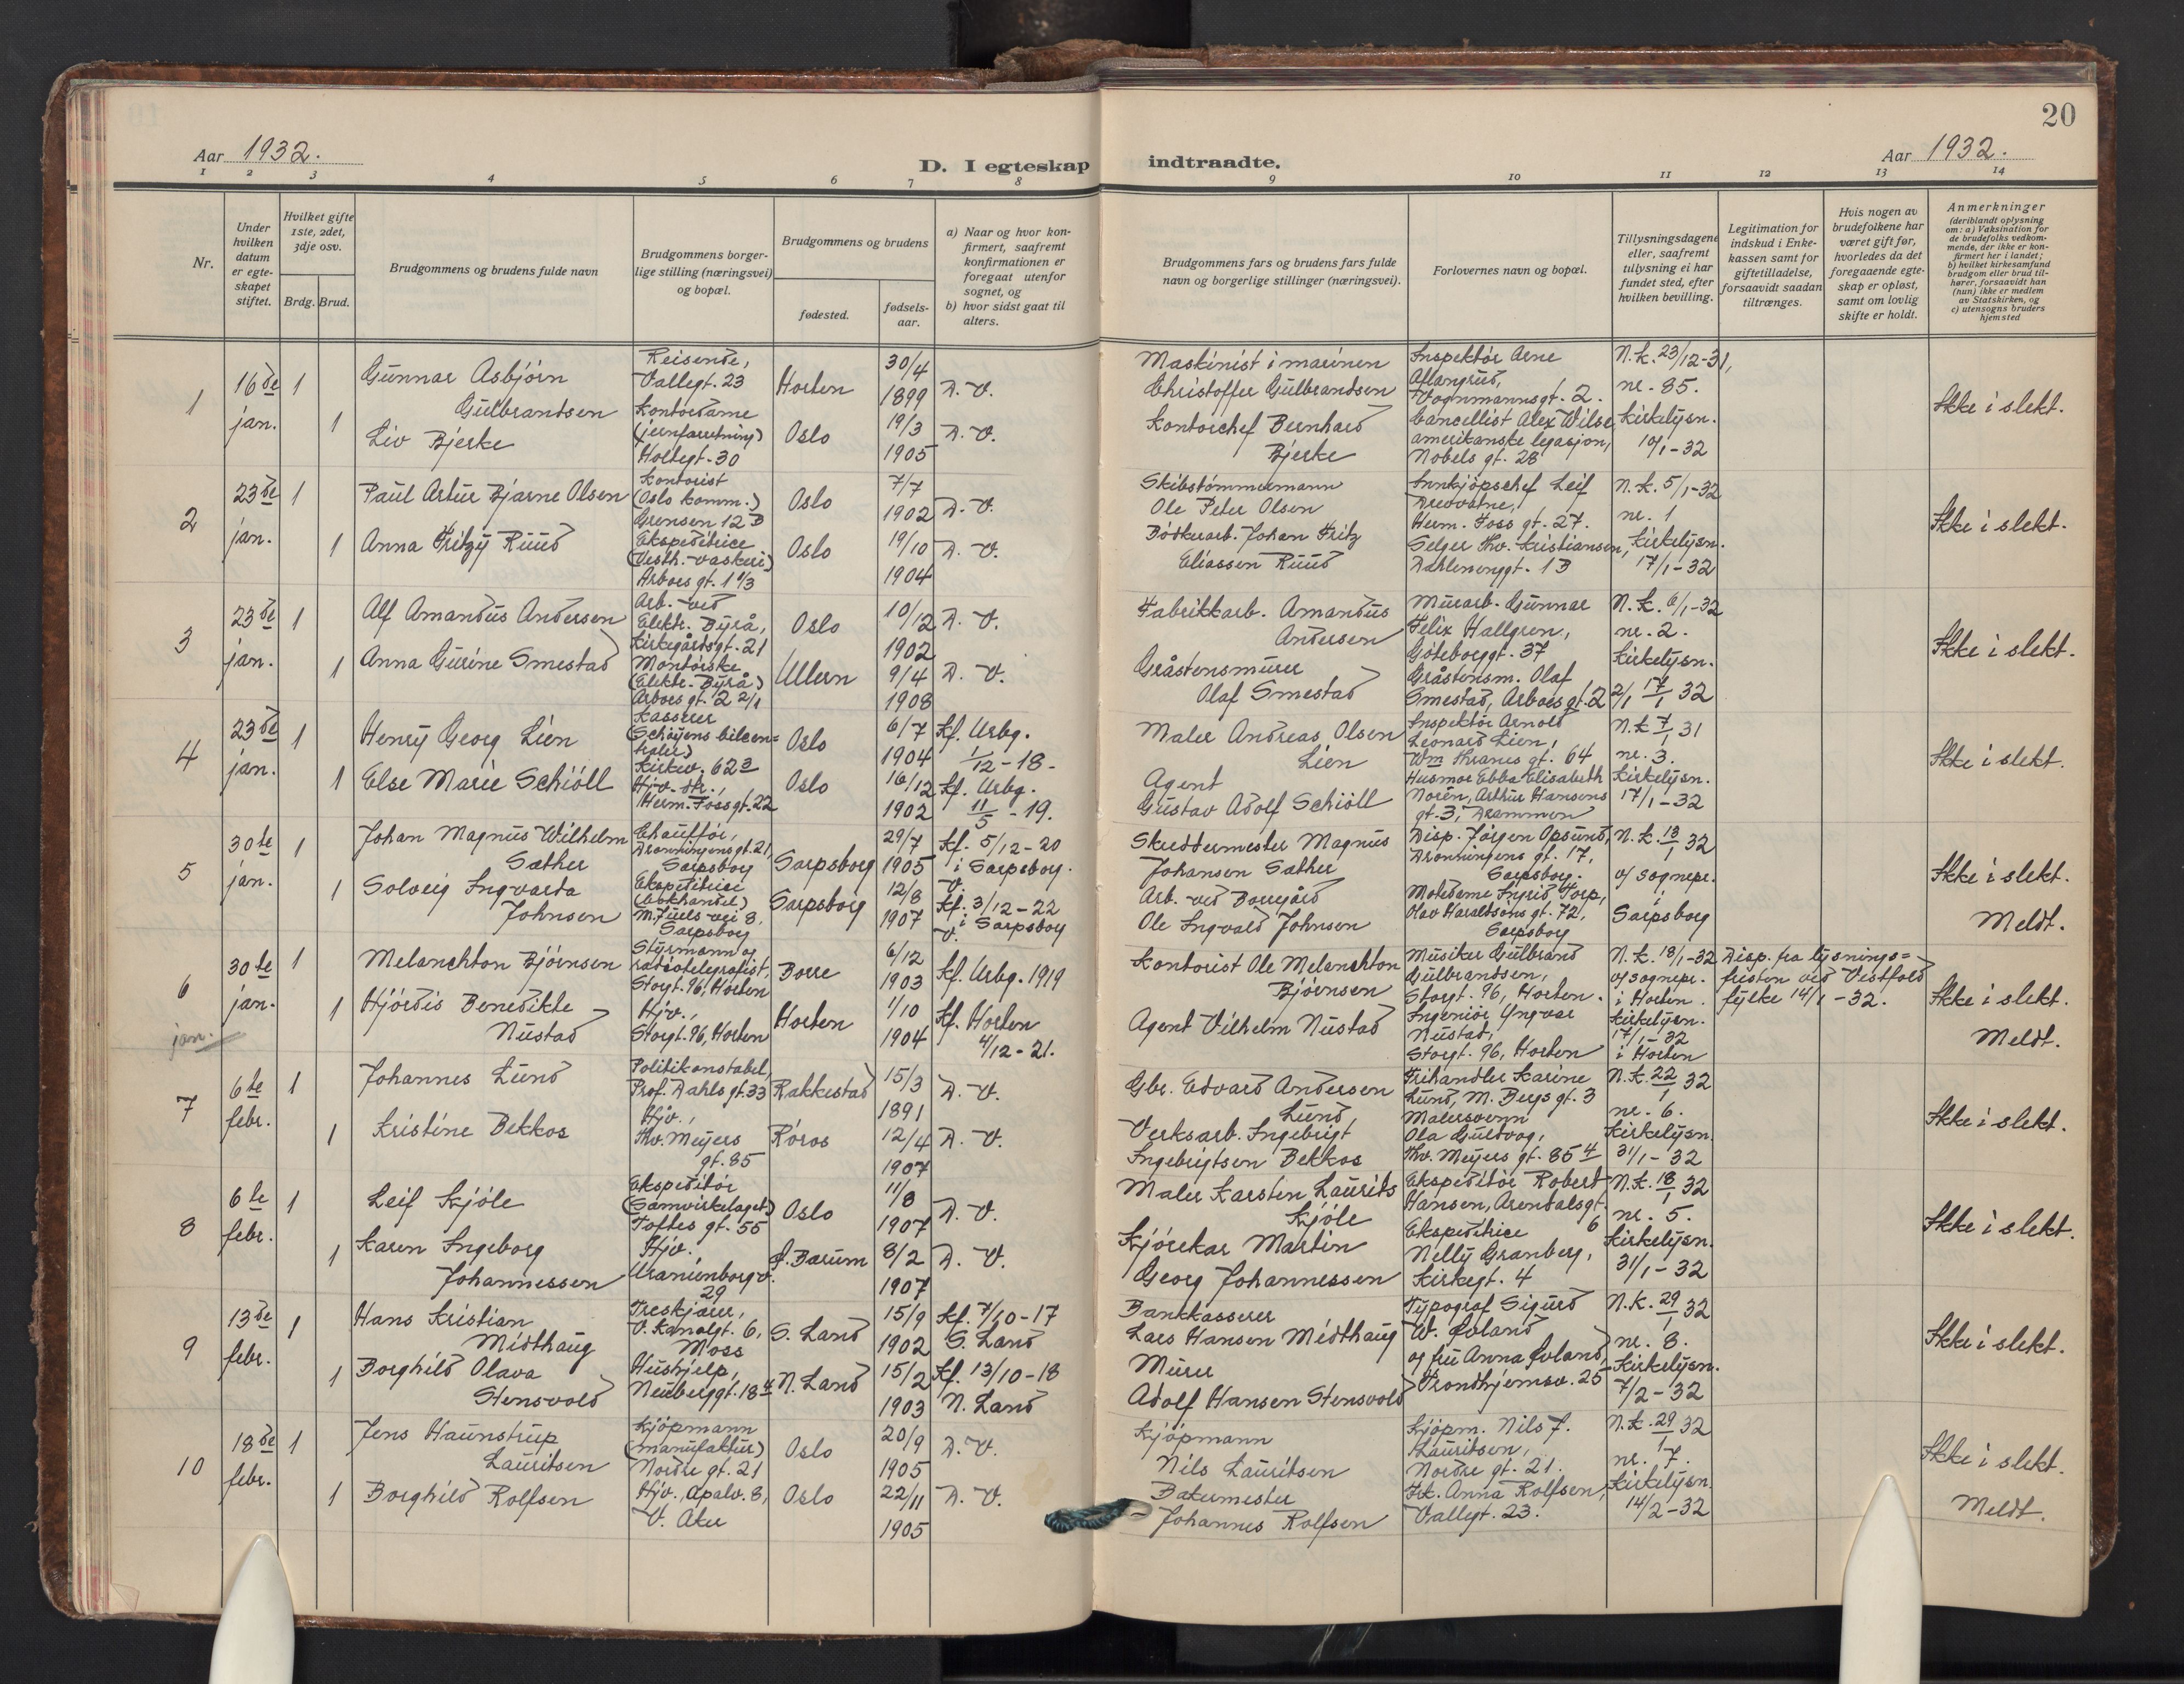 20
Aar 1932.
D. I egteskap indtraadte.
Aar 1932.
1 2 3 4 5 6 7 8 9 10 11 12 13 14
Nr.
Under hvilken datum er egteskapet stiftet.
Hvilket gifte 1ste, 2det, 3dje osv.
Brdg. Brud.
Brudgommens og brudens fulde navn
Brudgommens borgerlige stilling (næringsvei) og bopæl.
Brudgommens og brudens
fødested.
fødselsaar.
a) Naar og hvor konfirmert, saafremt konfirmationen er foregaat utenfor sognet, og
b) hvor sidst gaat til alters.
Brudgommens fars og brudens fars fulde navn og borgerlige stillinger (næringsvei).
Forlovernes navn og bopæl.
Tillysningsdagene eller, saafremt tillysning ei har fundet sted, efter hvilken bevilling.
Legitimation for indskud i Enkekassen samt for giftetilladelse, forsaavidt saadan tiltrænges.
Hvis nogen av brudefolkene har været gift før, hvorledes da det foregaaende egteskap er opløst, samt om lovlig skifte er holdt.
Anmerkninger
(deriblandt oplysning om: a) Vaksination for de brudefolks vedkommende, der ikke er konfirmert her i landet; b) hvilket kirkesamfund brudgom eller brud tilhører, forsaavidt han (hun) ikke er medlem av Statskirken, og c) utensogns bruders hjemsted
1
16de jan.
1
Gunnar Asbjörn
Gulbrandsen
Reisende,
Vallegt. 23
Horten
30/4
1899
D. V.
Maskinist i marinen
Christoffer Gulbrandsen
Inspektör Arne
Allangrud,
Vognmannsgt. 2.
N.k. 23/12-31,
nr. 85.
Ikke i slekt.
1
Liv Bjerke
Kontordame
(jernforretning)
Holtegt. 30
Oslo
19/3
1905
D. V.
Kontorchef Bernhard
Bjerke
Cancellist Alex Wilse,
amerikanske legasjon,
Nobels gt. 28
Kirkelysn.
10/1-32
2
23de jan.
1
Paul Artur Bjarne Olsen
Kontorist
(Oslo komm.)
Grensen 12 B
Oslo
7/7
1902
D. V.
Skibstömmermann
Ole Peter Olsen
Innkjöpschef Leif
Drevvatne,
Herm. Foss gt. 27.
N.k. 5/1-32
nr. 1
Ikke i slekt.
1
Anna Fritzy Ruud
Ekspeditrice
(Vesth. vaskeri)
Arboes gt. 1 1/3
Oslo
19/10
1904
D. V.
Bödkerarb. Johan Fritz
Eliassen Ruud
Selger Thv. Kristiansen,
Dahlenenggt. 13
Kirkelysn.
17/1-32
3
23de jan.
1
Alf Amandus Andersen
Arb. ved
Elektr. Byrå,
Kirkegårdsgt. 21
Oslo
10/12
1902
D. V.
Fabrikkarb. Amandus
Andersen
Murarb. Gunnar
Felix Hallgren,
Göteborggt. 37
N.k. 6/1-32
nr. 2.
Ikke i slekt.
1
Anna Gurine Smestad
Montörske
(Elektr. Byrå)
Arboes gt. 2 2/1
Ullern
9/4
1908
D. V.
Gråstensmurer
Olaf Smestad
Gråstensm. Olaf
Smestad, Arboes gt. 2 2/1
Kirkelysn.
17/1 32
4
23de jan.
1
Henry Georg Lien
Kasserer
(Schöyens bilcentraler)
Kirkev. 62 3
Oslo
6/7
1904
Kf. Urbg.
1/12-18.
Maler Andreas Olsen
Lien
Inspektör Arnold
Leonard Lien,
Wm Thranes gt. 64
N.k. 7/1 31
nr. 3.
Ikke i slekt.
1
Else Marie Schiöll
Hjv. str.,
Herm. Foss gt. 22
Oslo
16/12
1902
Kf. Urbg.
11/5-19.
Agent
Gustav Adolf Schiöll
Husmor Ebba Elisabeth
Norén, Arthur Hansens
gt. 3, Drammen
Kirkelysn.
17/1-32
5
30te jan.
1
Johan Magnus Wilhelm
Sæther
Chaufför,
Dronningens gt. 21,
Sarpsborg
Sarpsborg
29/7
1905
Kf. 5/12-20
i Sarpsborg.
V.
Skreddermester Magnus
Johansen Sæther
Disp. Jörgen Opsund,
Dronningens gt. 17,
Sarpsborg.
N.k. 13/1 32
v/ sognepr.
i
Sarpsborg
Ikke i slekt.
Meldt.
1
Solveig Ingvarda
Johnsen
Ekspeditrice
(bokhandel)
M. Juels vei 8,
Sarpsborg
Sarpsborg
12/8
1907
Kf. 3/12-22
i Sarpsborg
V.
Arb. ved Borregård
Ole Ingvald Johnsen
Motedame Ingrid Torp,
Olav Haraldsons gt. 72,
Sarpsborg
6
30te jan.
1
Melanchton Björnsen
Styrmann og
radiotelegrafist,
Storgt. 96, Horten
Borre
6/12
1903
Kf. Urbg. 1919
Kontorist Ole Melanchton
Björnsen
Musiker Gulbrand
Gulbrandsen,
Storgt. 96, Horten.
N.k. 18/1-32
v/ sognepr.
i Horten.
Disp. fra lysnings=
fristen ved Vestfold
fylke 14/1-32.
Ikke i slekt.
Meldt.
1
Hjördis Benedikte
Nustad
Hjv.,
Storgt. 96, Horten
Horten
1/10
1904
Kf. Horten
4/12-21.
Agent Vilhelm Nustad
Ingeniör Yngvar
Nustad,
Storgt. 96, Horten
Kirkelysn.
17/1-32
i Horten
jan.
7
6te febr.
1
Johannes Lund
Politikonstabel,
Prof. Dahls gt. 33
Rakkestad
15/3
1891
D. V.
Gbr. Edvard Andersen
Lund
Frihandler Karine
Lund, M. Bergs gt. 3
N.k. 22/1 32
nr. 6.
Ikke i slekt.
1
Kristine Bekkos
Hjv.,
Thv. Meyers
gt. 85
Röros
12/4
1907
D. V.
Verksarb. Ingebrigt
Ingebrigtsen Bekkos
Malersvenn
Ola Gullvog,
Thv. Meyers gt. 85 4
Kirkelysn.
31/1-32
8
6te febr.
1
Leif Kjöle
Ekspeditör
(Samvirkelaget)
Toftes gt. 55
Oslo
11/8
1907
D. V.
Maler Karsten Laurits
Kjöle
Ekspeditör Robert
Hansen, Arendalsgt.
6
N.k. 18/1 32
nr. 5.
Ikke i slekt.
1
Karen Ingeborg
Johannessen
Hjv.,
Uranienborgv.
29
Ö. Bærum
8/2
1907
D. V.
Kjörekar Martin
Georg Johannessen
Ekspeditrice
Nelly Granberg,
Kirkegt. 4
Kirkelysn.
31/1-32
9
13de febr.
1
Hans Kristian
Midthaug
Treskjærer,
V. Kanalgt. 6,
Moss
S. Land
15/9
1902
Kf. 7/10-17
S. Land
Bankkasserer
Lars Hansen Midthaug
Typograf Sigurd
W. Öoland
og fru Anna Öoland,
Trondhjemsv. 25
N.K. 29/1 32
nr. 8.
Kirkelysn.
7/2-32
Ikke i slekt.
1
Borghild Olava
Stensvold
Hushjelp,
Neuberggt. 18 4
N. Land
15/2
1903
Kf. 13/10-18
N. Land
Murer
Adolf Hansen Stensvold
10
18de febr.
1
Jens Haunstrup
Lauritsen
Kjöpmann
(manufaktur)
Nordre gt. 21
Oslo
20/9
1905
D. V.
Kjöpmann
Nils Lauritsen
Kjöpm. Nils J.
Lauritsen,
Nordre gt. 21.
N.k. 29/1 32
nr. 7.
Ikke i slekt.
Meldt.
1
Borghild Rolfsen
Hjv., Apalv. 8,
V. Aker
Oslo
22/11
1905
D. V.
Bakermester
Johannes Rolfsen
Frk. Anna Rolfsen,
Vallegt. 23.
Kirkelysn.
14/2-32